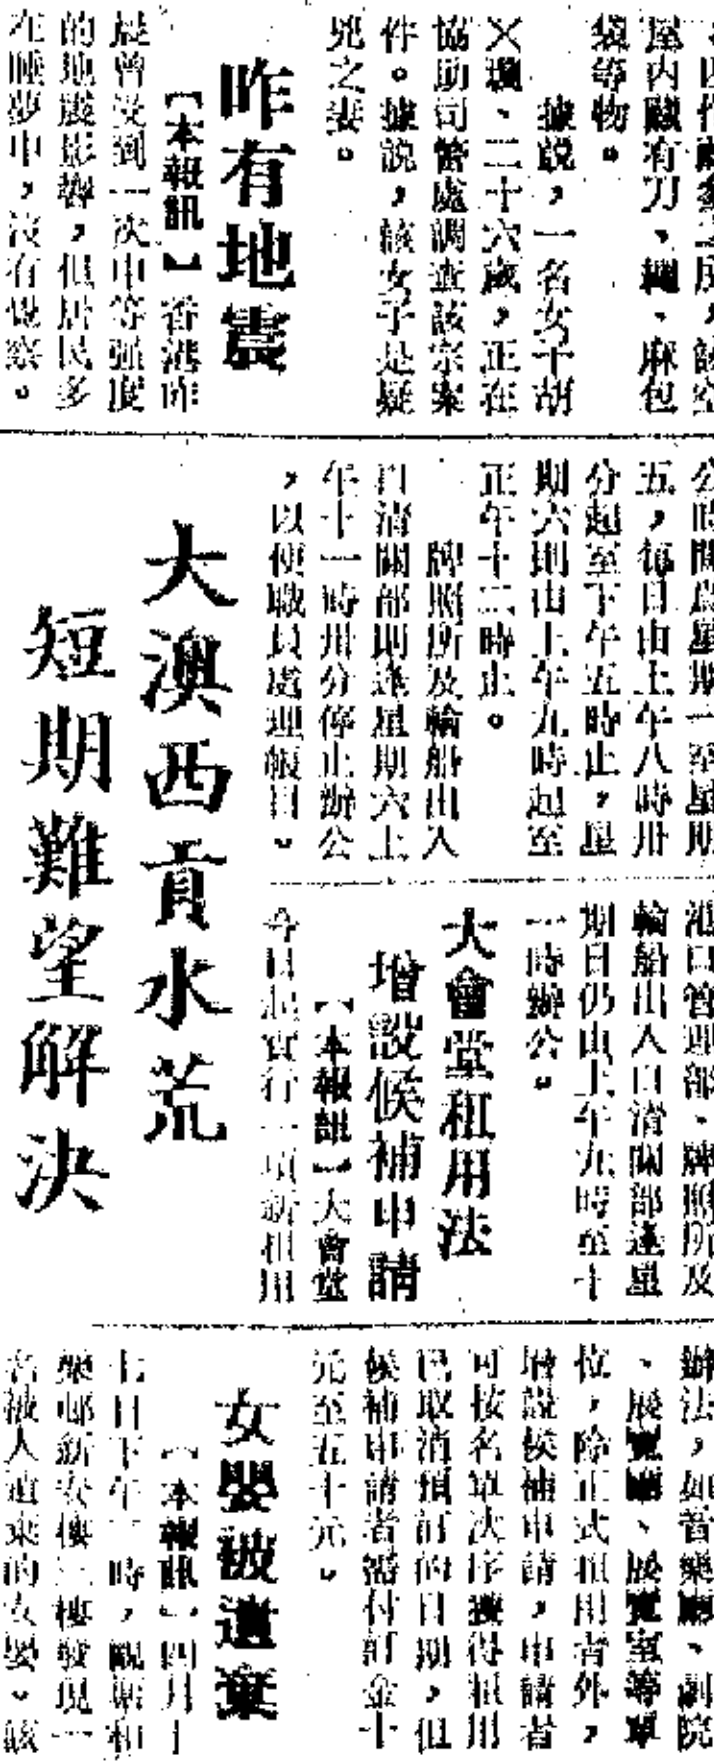 屋內藏有刀、繩、麻包
袋等物。
據說,一名女子胡
×珊、二十六歲,正在
協助司警處調查該宗案
件。據說,該女子是疑
兇之妻。
昨有地震
【本報訊】香港昨
晨曾受到一次中等強度
的地震影響,但居民多
在睡夢中,沒有覺察。
公時間為星期一至星期
五,每日由上午八時卅
分起至下午五時止,星
期六則由上午九時起至
正午十二時止。
牌照所及輪船出入
口清關部則逢星期六上
午十一時卅分停止辦公
,以便職員處理賬目。
港口管理部、牌照所及
輪船出入口清關部逢星
期日仍由上午九時至十
一時辦公。
大會堂租用法
增設候補申請
【本報訊】大會堂
今日起實行一項新租用
辦法,如音樂廳、劇院
、展覽廳、展覽室等單
位,除正式租用者外,
增設候補申請,申請者
可按名單次序獲得租用
已取消預訂的日期,但
候補申請者需付訂金十
元至五十元。
大澳西貢水荒
短期難望解決
女嬰被遺棄
【本報訊】四月十
七日下午一時,觀塘和
樂邨新安樓二樓發現一
名被人遺棄的女嬰。該